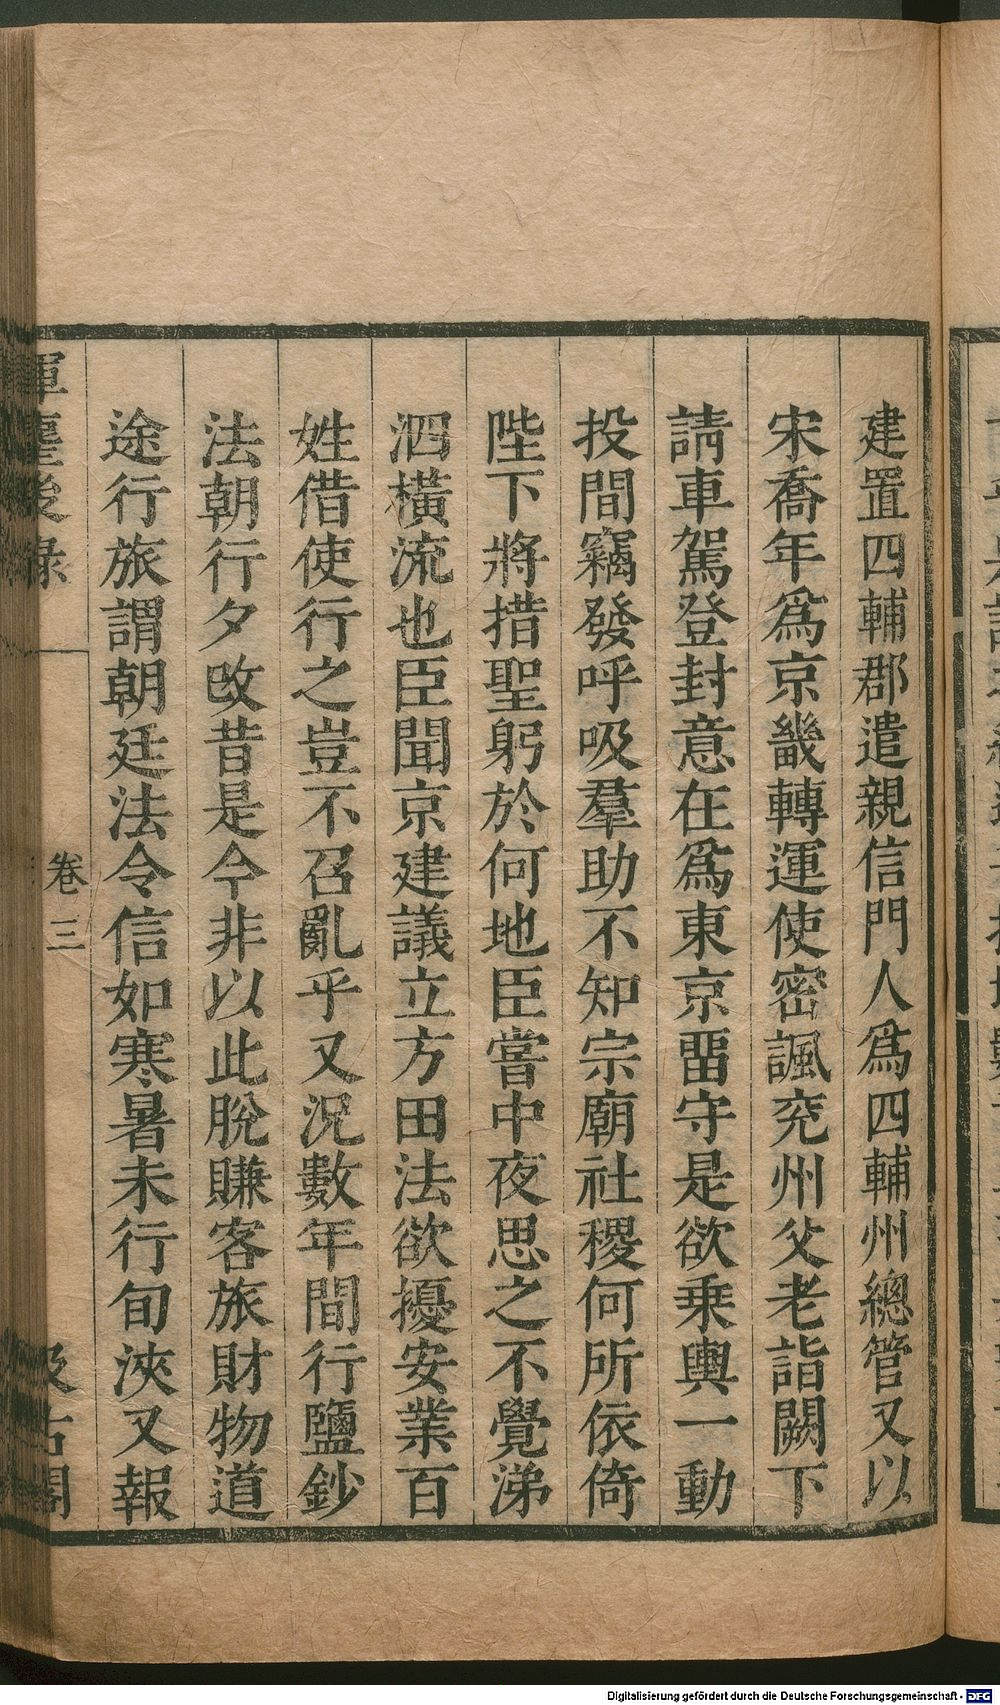 建置四輔郡遣親信門人爲四輔州總管又以
宋喬年爲京畿轉運使密諷兖州父老詣闕下
請車駕登封意在爲東京畱守是欲乗輿一動
投間竊發呼吸羣助不知宗廟社稷何所依倚
陛下將措聖躬於何地臣嘗中夜思之不覺涕
泗橫流也臣聞京建議立方田法欲擾安業百
姓借使行之豈不召亂乎又況數年間行鹽鈔
法朝行夕改昔是今非以此脫賺客旅財物道
途行旅謂朝廷法令信如寒暑未行旬浹又報
卷三
Digitalisierung gefördert durch die Deutsche Forschungsgemeinschaft - DFG